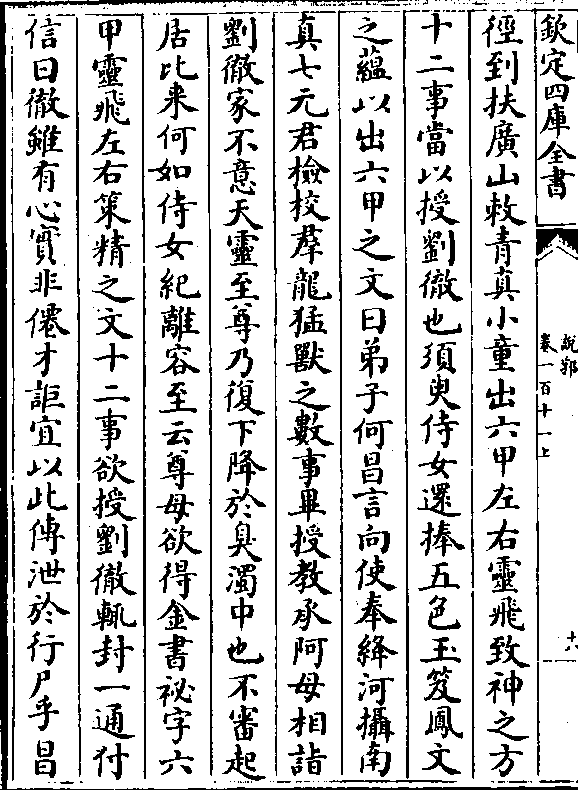 欽定四庫全書
說郛
卷一百十一上
十六
徑到扶廣山敕青真小童出六甲左右靈飛致神之方
十二事當以授劉徹也須臾侍女還捧五色玉笈鳳文
之蘊以出六甲之文曰弟子何昌言向使奉絳河攝南
真七元君檢校羣龍猛獸之數事畢授教承阿母相詣
劉徹家不意天靈至尊乃復下降於臭濁中也不審起
居比来何如侍女紀離容至云尊母欲得金書祕字六
甲靈飛左右策精之文十二事欲授劉徹輒封一通付
信曰徹雖有心實非僊才詎宜以此傳泄於行尸乎昌